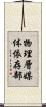 物理層媒
体依存部